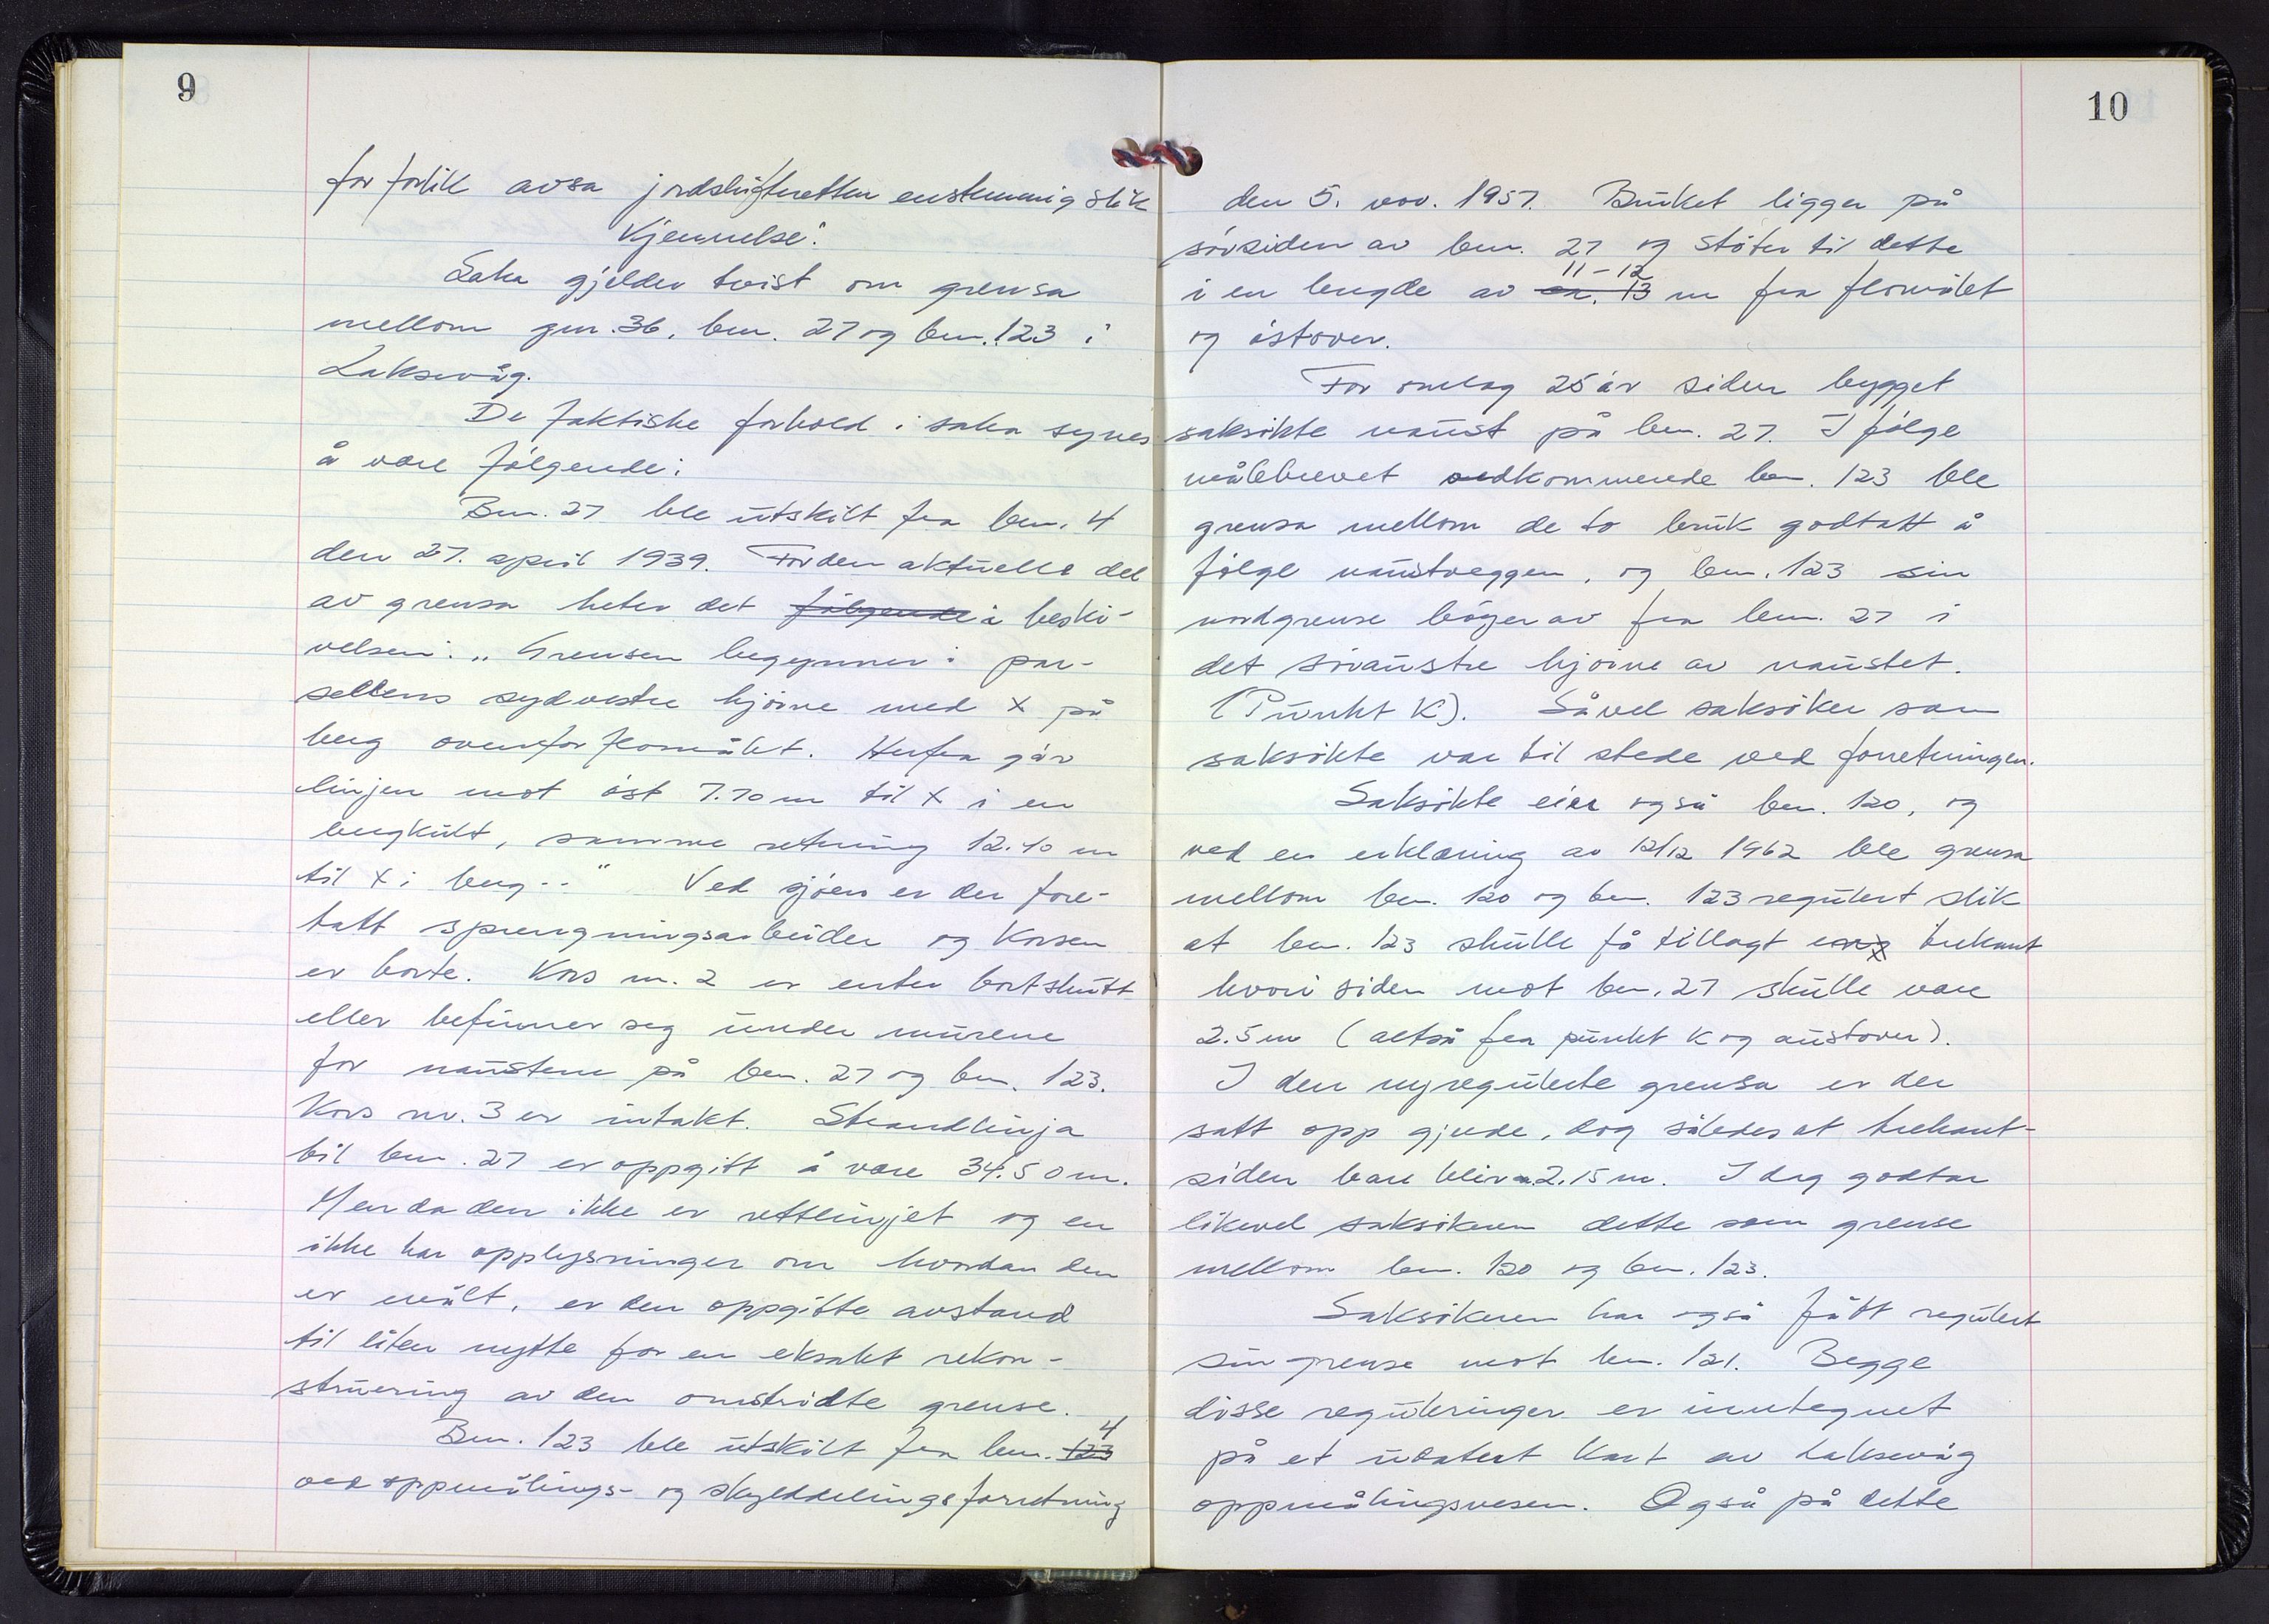 9
for forlik avsa jordskifteretten enstemmig slik
Kjennelse:
Saka gjelder tvist om grensa
mellom gnr. 36, bnr. 27 og bnr. 123 i
Laksevåg.
De faktiske forhold i saka synes
å være følgende:
Bnr. 27 ble utskilt fra bnr. 4
den 27. april 1939. For den aktuelle del
av grensa heter det følgende i beskri-
velsen: „Grensen begynner i par-
sellens sydvestre hjørne med x på
berg ovenfor flomålet. Herfra går
linjen mot øst 7.70 m til x i en
bergkult, samme retning 12.10 m
til x i berg - - " Ved sjøen er der fore-
tatt sprengningsarbeider og korsen
er borte. Kors nr. 2 er enten bortskutt
eller befinner seg under murene
for naustene på bnr. 27 og bnr. 123.
Kors nr. 3 er intakt. Strandlinja
til bnr. 27 er oppgitt å være 34.50 m.
Men da den ikke er rettlinjet og en
ikke har opplysninger om hvordan den
er målt, er den oppgitte avstand
til liten nytte for en eksakt rekon-
struering av den omstridte grense.
4
Bnr. 123 ble utskilt fra bnr. 123
ved oppmålings- og skylddelingsforretning
10
den 5. nov. 1957. Bruket ligger på
sørsiden av bnr. 27 og støter til dette
11-12
i en lengde av ca. 13 m fra flomålet
og østover.
For omlag 25 år siden bygget
saksøkte naust på bnr. 27. I følge
målebrevet vedkommende bnr. 123 ble
grensa mellom de to bruk godtatt å
følge naustveggen, og bnr. 123 sin
nordgrense bøyer av fra bnr. 27 i
det søraustre hjørne av naustet.
(Punkt K). Såvel saksøker som
saksøkte var til stede ved forretningen.
Saksøkte eier også bnr. 120, og
ved en erklæring av 12/12 1962 ble grensa
mellom bnr. 120 og bnr. 123 regulert slik
at bnr. 123 skulle få tillagt en trekant
hvori siden mot bnr. 27 skulle være
2.5 m (altså fra punkt K og austover).
I den nyregulerte grensa er der
satt opp gjerde, dog således at trekant-
siden bare blir 2.15 m. I dag godtar
likevel saksøkeren dette som grense
mellom bnr. 120 og bnr. 123.
Saksøkeren har også fått regulert
sin grense mot bnr. 121. Begge
disse reguleringer er inntegnet
på et udatert kart av Laksevåg
oppmålingsvesen. Også på dette